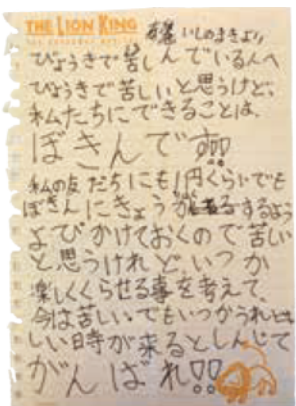 THE LION KING
いしのまきより
びょうきで苦しんでいる人へ
びょうきで苦しいと思うけど、
私たちにできることは、
ぼきんです!!
私の友だちにも1円くらいでも
ぼきんにきょう するよう
よびかけておくので苦しい
と思うけれど、いつか
楽しくくらせる事を考えて、
今は苦しい。でもいつかうれ
しい日時が来るとしんじて
がんばれ!!